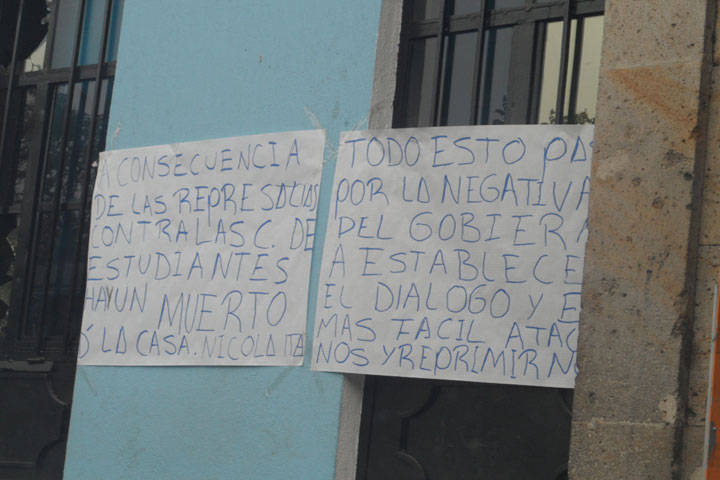 A CONSECUENCIA
DE LAS REPRESALIAS
CONTRA LAS C. DE
ESTUDIANTES
HAY UN MUERTO
Ó LA CASA. NICOLAITA
TODO ESTO PA
POR LA NEGATIVA
DEL GOBIER
A ESTABLECE
EL DIALOGO Y E
MAS FACIL ATAC
NOS Y REPRIMIR N